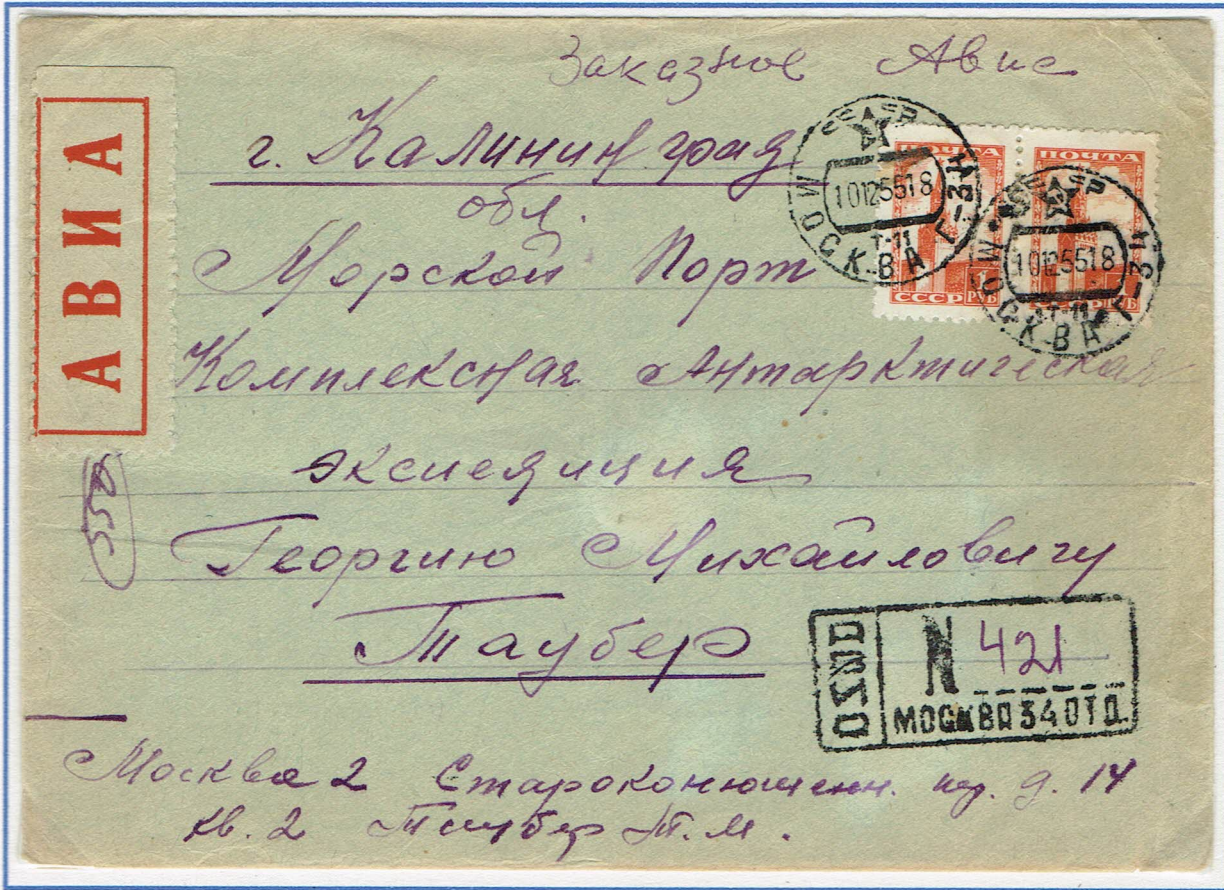 Заказное Авиа
АВИА
г. Калининград
обл.
Морской Порт
Комплексная Антарктическая
экспедиция
Георгию Михайловичу
Таубер
550
ПОЧТА
СССР 1 РУБ
ПОЧТА
РУБ
МОСКВА Г-34
10125518
МОСКВА Г-34
10125518
N 421
МОСКВА 34 ОТД.
Москва 2 Староконюшенн. пер. д. 14
кв. 2 Таубер Т. М.